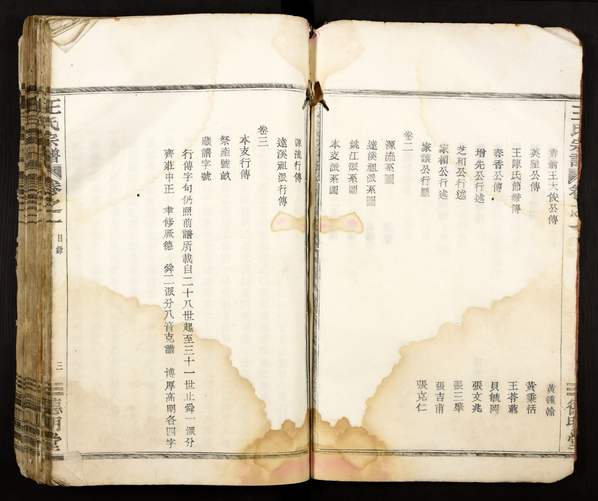 王大俊公傳 黃
英呈公傳 黃秉恬
王陳氏節 傳 王
春香公傳 貝 岡
增先公行述 張文兆
芝和公行述 張三
家楣公行述 張吉甫
家 公行 張克仁
卷二
源流系圖
遠溪祖派系圖
姚江派系圖
本支派系圖
源流行傳
遠溪祖派行傳
卷三
本支行傳
祭產號畝
藏譜字號
行傳字句仍照前譜所載自二十八世起至三十一世止舜一派分
齊莊中正 聿修厥德 舜二派分八音克諧 博厚高明各四字
王氏宗譜 卷之一 目錄 三 三德明堂